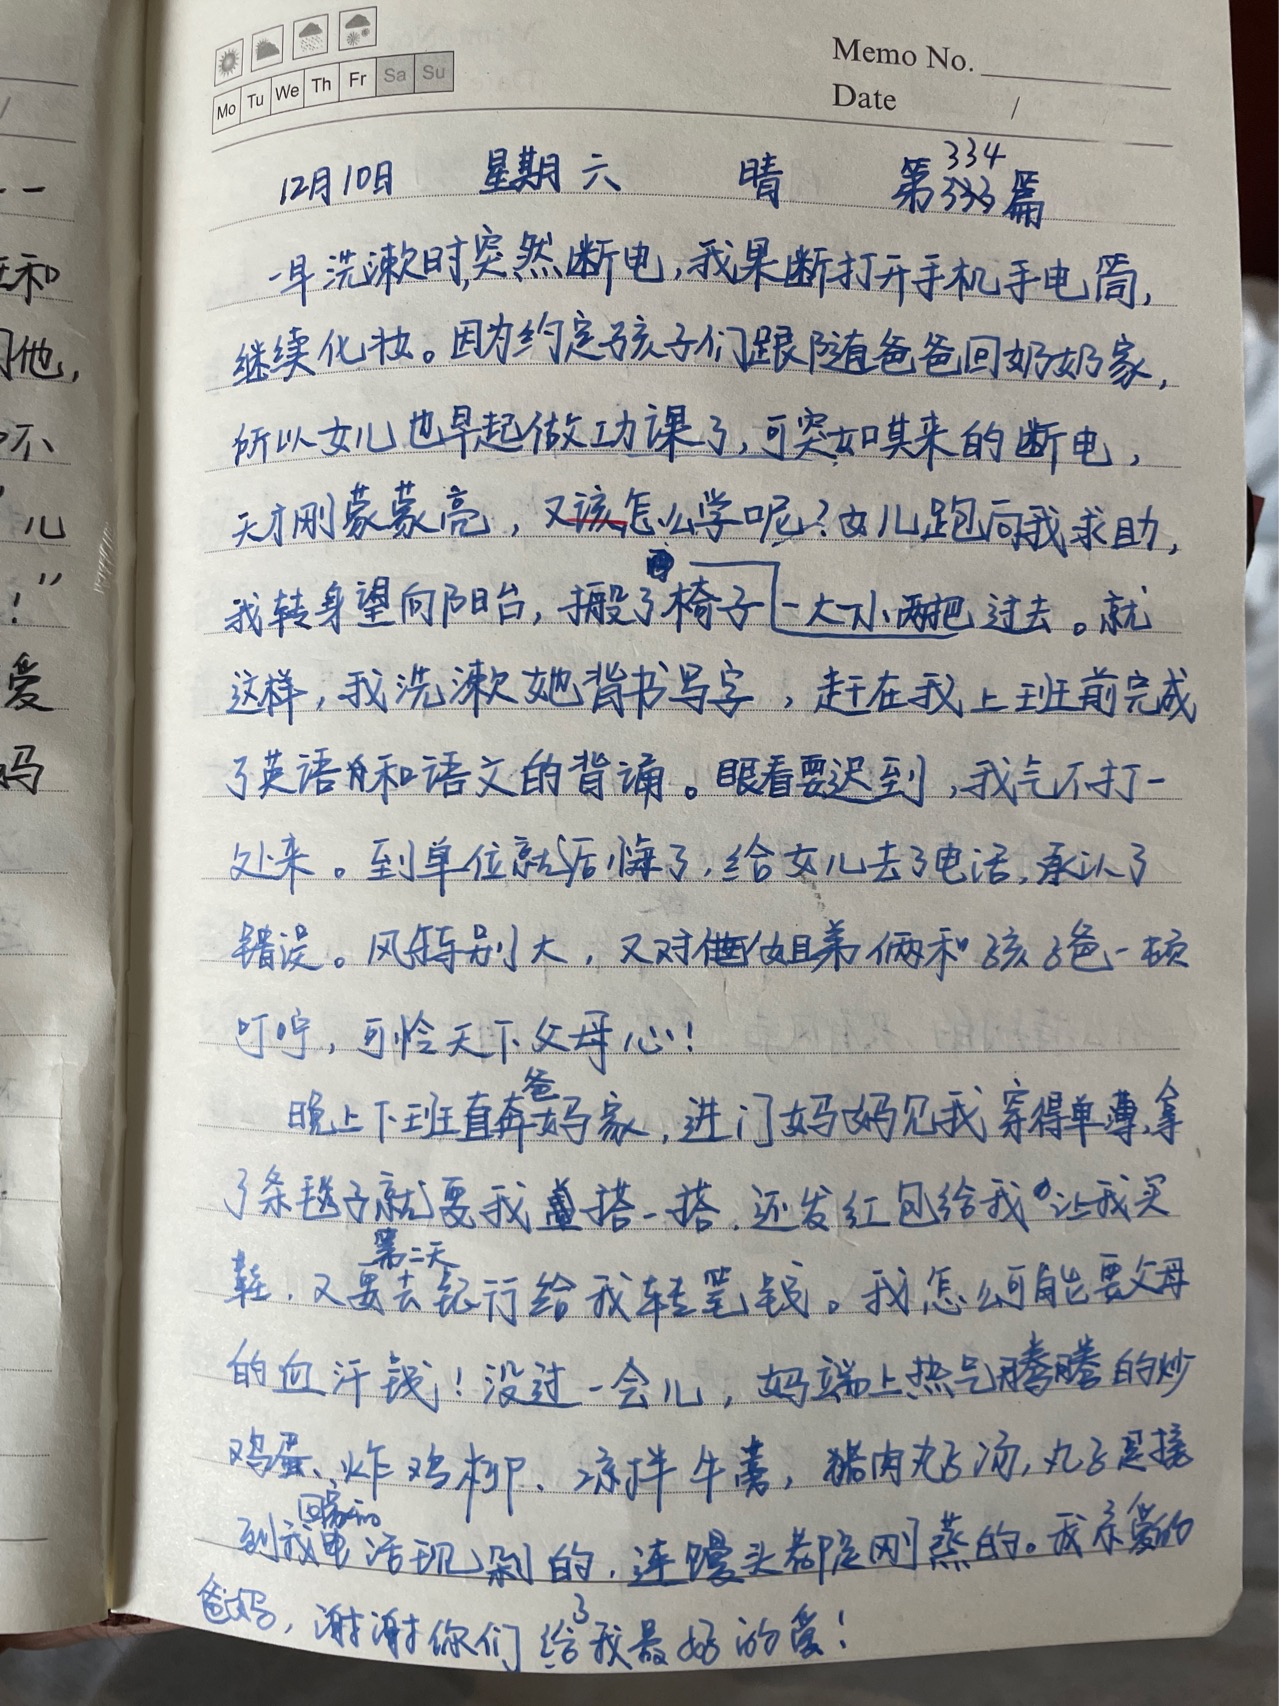 Mo Tu We Th Fr Sa Su
Memo No.
Date /
12月10日 星期六 晴 第334篇
一早洗漱时,突然断电,我果断打开手机手电筒,
继续化妆。因为约定孩子们跟随爸爸回奶奶家,
所以女儿也早起做功课了,可突如其来的断电,
天才刚蒙蒙亮,又该怎么学呢?女儿跑向我求助,
我转身望向阳台,搬了椅子一大一小两把过去。就
这样,我洗漱她背书写字,赶在我上班前完成
了英语和语文的背诵。眼看要迟到,我气不打一
处来。到单位就后悔了,给女儿去了电话,承认了
错误。风特别大,又对他姐弟俩和孩子爸一顿
叮咛,可怜天下父母心!
晚上下班直奔爸妈家,进门妈妈见我穿得单薄,拿
了条毯子就要我搭一搭,还发红包给我让我买
鞋,又要第二天去银行给我转笔钱。我怎么可能要父母
的血汗钱!没过一会儿,妈端上热气腾腾的炒
鸡蛋、炸鸡柳、凉拌牛蒡,猪肉丸子汤,丸子是接
到我回家的电话现剁的,连馒头都是刚蒸的。我亲爱的
爸妈,谢谢你们给了我最好的爱!
和
他,
不
儿
!"
爱
妈